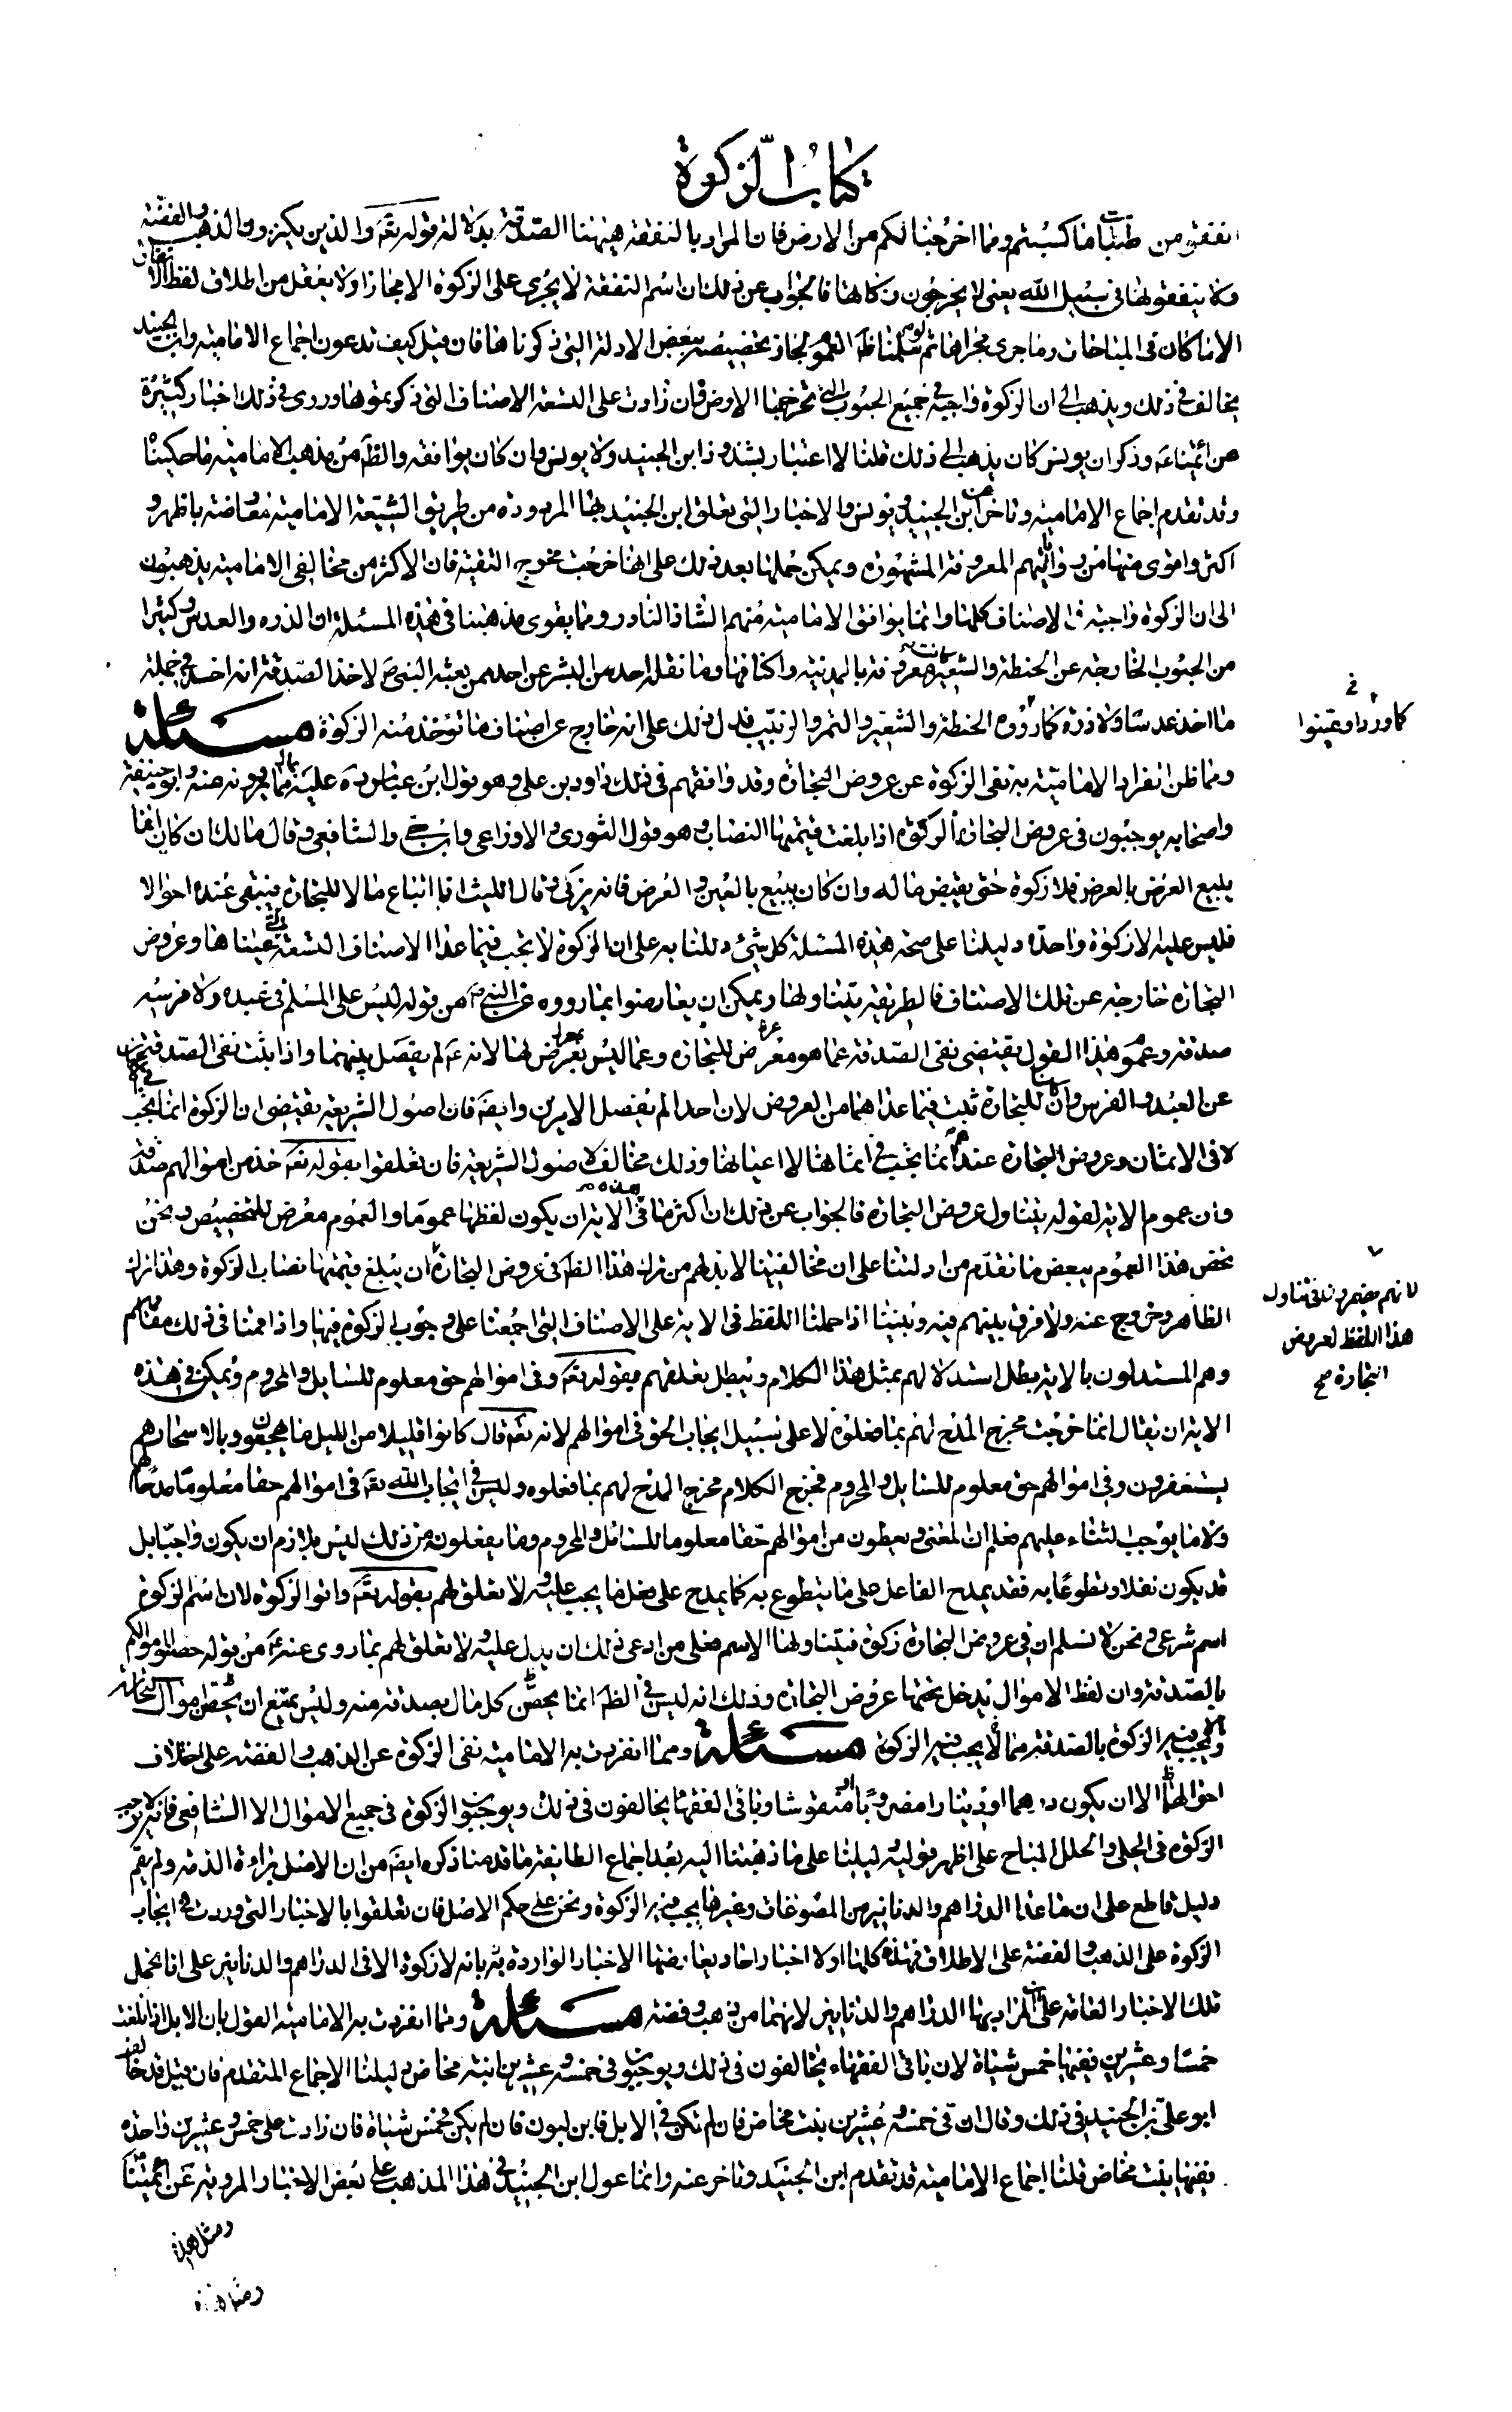 كتاب الزكوة
انفقوا من طيبات ما كسبتم ومما اخرجنا لكم من الارض فان المراد بالنفقة هيهنا الصدقة بدلالة قوله تعَ والذين يكنزون الذهب والفضة
ولا ينفقونها في سبيل الله يعني لا يخرجون زكاتها فالجواب عن ذلك ان اسم النفقة لا يجري على الزكوة الا مجازا ولا يعقل من اطلاق لفظ الانفاق
الا ما كان في المباحات وما جرى مجراها ثم لو سلمنا ظَ العموم لجاز تخصيصه ببعض الادلة التي ذكرناها فان قيل كيف تدعون اجماع الامامية وابن الجنيد
يخالف في ذلك ويذهب الى ان الزكوة واجبة في جميع الحبوب التي تخرجها الارض وان زادت على التسعة الاصناف التي ذكرتموها وروى في ذلك اخبار كثيرة
عن ائمتنا عَ وذكر ان يونس كان يذهب الى ذلك قلنا لا اعتبار بشذوذ ابن الجنيد ولا يونس وان كان يوافقه والظَ من مذهب الامامية ما حكيناه
وقد تقدم اجماع الامامية وتاخر عن ابن الجنيد ويونس والاخبار التي تعلق ابن الجنيد بها المروية من طريق الشيعة الامامية معارضة باظهر و
اكثر واقوى منها من رواياتهم المعروفة المشهورة ويمكن حملها بعد ذلك على انها خرجت مخرج التقية فان الاكثر من مخالفي الامامية يذهبون
الى ان الزكوة واجبة في الاصناف كلها وانما يوافق الامامية منهم الشاذ النادر ومما يقوى مذهبنا في هذه المسئلة ان الذره والعدس وكثيرا
من الحبوب الخارجة عن الحنطة والشعير كانت معروفة بالمدينة واكنافها وما نقل احد من البشر عن احد ممن بعثه النبي صَ لاخذ الصدقة انه اخذ في جملة
ما اخذ عدسا ولا ذرة كما رووه في الحنطة والشعير والتمر والزبيب فدل ذلك على انه خارج عن اصناف ما تؤخذ منه الزكوة مسئلة
كما ورد او عينوا
ومما ظن انفراد الامامية به نفى الزكوة عن عروض التجارة وقد وافقهم في ذلك داود بن على وهو قول ابن عباس رَه عليه فيما يروونه عنه وابو حنيفة
واصحابه يوجبون في عروض التجارة الزكوة اذا بلغت قيمتها النصاب وهو قول الثوري والاوزاعي وابن حي والشافعي وقال مالك ان كان انما
يبيع العرض بالعرض فلا زكوة حتى يقبض ماله وان كان يبيع بالعين والعرض فانه يزكى وقال الليث اذا ابتاع مالا للتجارة فبقى عنده احوالا
فليس عليه الا زكوة واحدة دليلنا على صحة هذه المسئلة كل شيء دللنا به على ان الزكوة لا تجب فيما عدا الاصناف التسعة التي عيناها وعروض
التجارة خارجة عن تلك الاصناف فالطريقة تتناولها ويمكن ان يعارضوا بما رووه عن النبي صَ من قوله ليس على المسلم في عبده ولا فرسه
صدقة وعموم هذا القول يقتضي نفى الصدقة عما هو معرض للتجارة وعما ليس بمعرض لها لانه عَ لم يفصل بينهما واذا ثبت نفى الصدقة
عن العبد والفرس وان كانا للتجارة ثبت فيما عداهما من العروض لان احدا لم يفصل الامرين وايضَ فان اصول الشريعة تقتضي ان الزكوة انما تجب في الاعيان
لا في الاثمان وعروض التجارة عندهم انما تجب في اثمانها لا اعيانها وذلك مخالف لاصول الشريعة فان تعلقوا بقوله تعَ خذ من اموالهم صدقة
وان عموم الاية لقوله يتناول عروض التجارة فالجواب عن ذلك ان اكثر ما في هذه الاية ان يكون لفظها عموما والعموم معرض للتخصيص ونحن
نخص هذا العموم ببعض ما تقدم من ادلتنا على ان مخالفينا لا بد لهم من ترك هذا الظَ في عروض التجارة ان يبلغ قيمتها نصاب الزكوة وهذا ترك
لانهم يضمرون في تناول
هذا اللفظ لعروض
التجارة صح
الظاهر وخروج عنه ولا فرق بينهم فيه وبيننا اذا حملنا اللفظ في الاية على الاصناف التي اجمعنا على وجوب الزكوة فيها واذا قمنا في ذلك مقامهم
وهم المستدلون بالاية بطل استدلالهم بمثل هذا الكلام ونبطل تعلقهم بقوله تعَ وفي اموالهم حق معلوم للسايل والمحروم ويمكن في هذه
الاية ان يقال انما خرجت مخرج المدح لهم بما فعلوه لا على سبيل ايجاب الحق في اموالهم لانه تعَ قال كانوا قليلا من الليل ما يهجعون وبالاسحار هم
يستغفرون وفي اموالهم حق معلوم للسايل والمحروم فخرج الكلام مخرج المدح لهم بما فعلوه وليس في ايجاب الله تعَ في اموالهم حقا معلوما مدحا لهم
ولا ما يوجب الثناء عليهم فعلم ان المعنى ويعطون من اموالهم حقا معلوما للسائل والمحروم وما يفعلونه من ذلك ليس بلازم ان يكون واجبا بل
قد يكون نفلا ومتطوعا به فقد يمدح الفاعل على ما يتطوع به كما يمدح على فعل ما يجب عليه ولا تعلق لهم بقوله تعَ واتوا الزكوة لان اسم الزكوة
اسم شرعي ونحن لا نسلم ان في عروض التجارة زكوة فيتناولها الاسم فعلى من ادعى ذلك ان يدل عليه ولا تعلق لهم بما روى عنه عَ من قوله حصنوا اموالكم
بالصدقة وان لفظ الاموال يدخل تحتها عروض التجارة وذلك انه ليس في الظَ انما يحصن كل مال بصدقة منه وليس يمتنع ان يحصن اموال التجارة
ولا يجب فيه الزكوة بالصدقة مما يجب فيه الزكوة مسئلة ومما انفردت به الامامية نفى الزكوة عن الذهب والفضة على اختلاف
احوالهما الا ان يكون درهما او دينارا مضروبا منقوشا وباقي الفقهاء يخالفون في ذلك ويوجبون الزكوة في جميع الاحوال الا الشافعي فانه لا يوجب
الزكوة في الحلى والحلل المباح على اظهر قوليه دليلنا على ما ذهبنا اليه بعد اجماع الطايفة ما قدمنا ذكره ايضَ من ان الاصل براءة الذمة ولم يقم
دليل قاطع على ان ما عدا الدراهم والدنانير من المصوغات وغيرها يجب فيه الزكوة ونحن على حكم الاصل فان تعلقوا بالاخبار التي وردت في ايجاب
الزكوة على الذهب والفضة على الاطلاق فهذه كلها اولا اخبار احاد يعارضها الاخبار الواردة بانه لا زكوة الا في الدراهم والدنانير على انا نحمل
تلك الاخبار العامة على ان المراد بها الدراهم والدنانير لانهما من ذهب وفضة مسئلة ومما انفردت به الامامية القول بان الابل اذا بلغت
خمسا وعشرين ففيها خمس شياه لان باقي الفقهاء يخالفون في ذلك ويوجبون في خمسة وعشرين ابنة مخاض دليلنا الاجماع المتقدم فان قيل قد خالف
ابو على بن الجنيد في ذلك وقال ان في خمسة وعشرين بنت مخاض فان لم تكن في الابل فابن لبون فان لم يكن فخمس شياه فان زادت على خمس وعشرين واحدة
ففيها بنت مخاض قلنا اجماع الامامية قد تقدم ابن الجنيد وتاخر عنه وانما عول ابن الجنيد في هذا المذهب على بعض الاخبار المروية عن ائمتنا
ومثل هذه